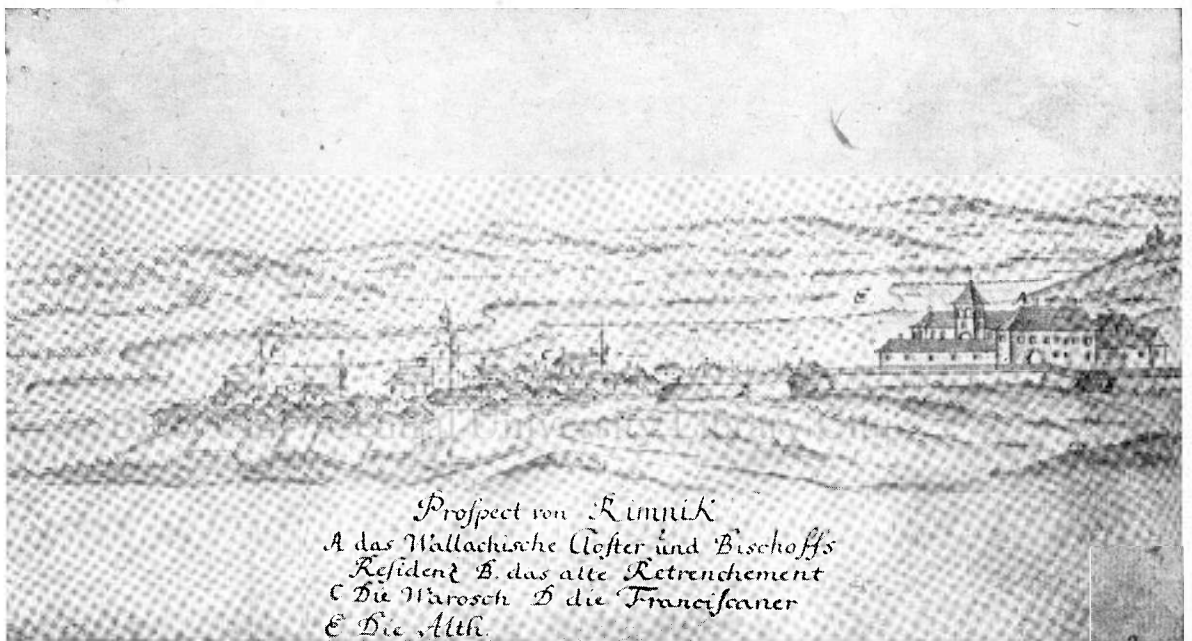 Proſpect von Rimnik
A das Wallachische Cloſter und Bischoffs
Reſidenz B. das alte Retrenchement
C Die Warosch D die Franciſcaner
E Die Alth.